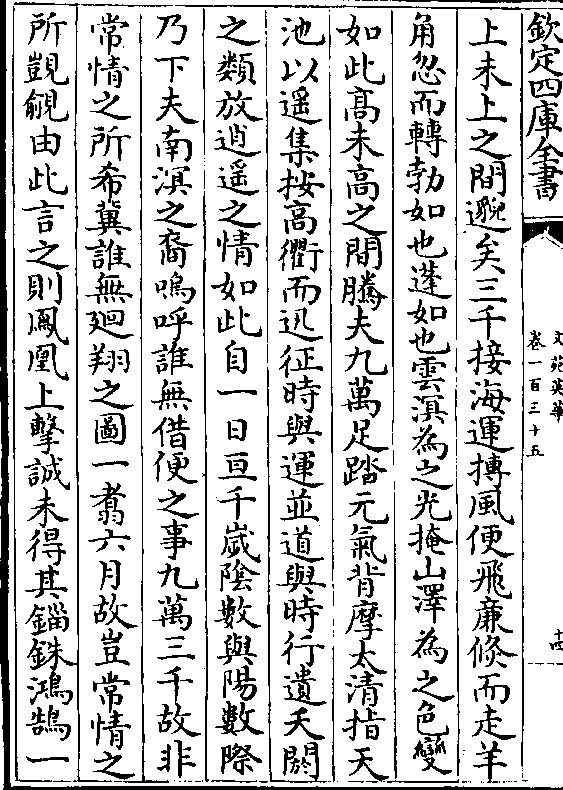 欽定四庫全書
文苑英華
卷一百三十五
十四
上未上之間邈矣三千接海運摶風便飛廉倏而走羊
角忽而轉勃如也蓬如也雲溟為之光掩山澤為之色變
如此髙未高之間騰夫九萬足踏元氣背摩太清指天
池以遥集按高衢而迅征時與運並道與時行遺夭閼
之類放逍遥之情如此自一日亘千歲陰數與陽數際
乃下夫南溟之裔嗚呼誰無借便之事九萬三千故非
常情之所希冀誰無廻翔之圖一翥六月故豈常情之
所覬覦由此言之則鳳凰上擊誠未得其錙銖鴻鵠一